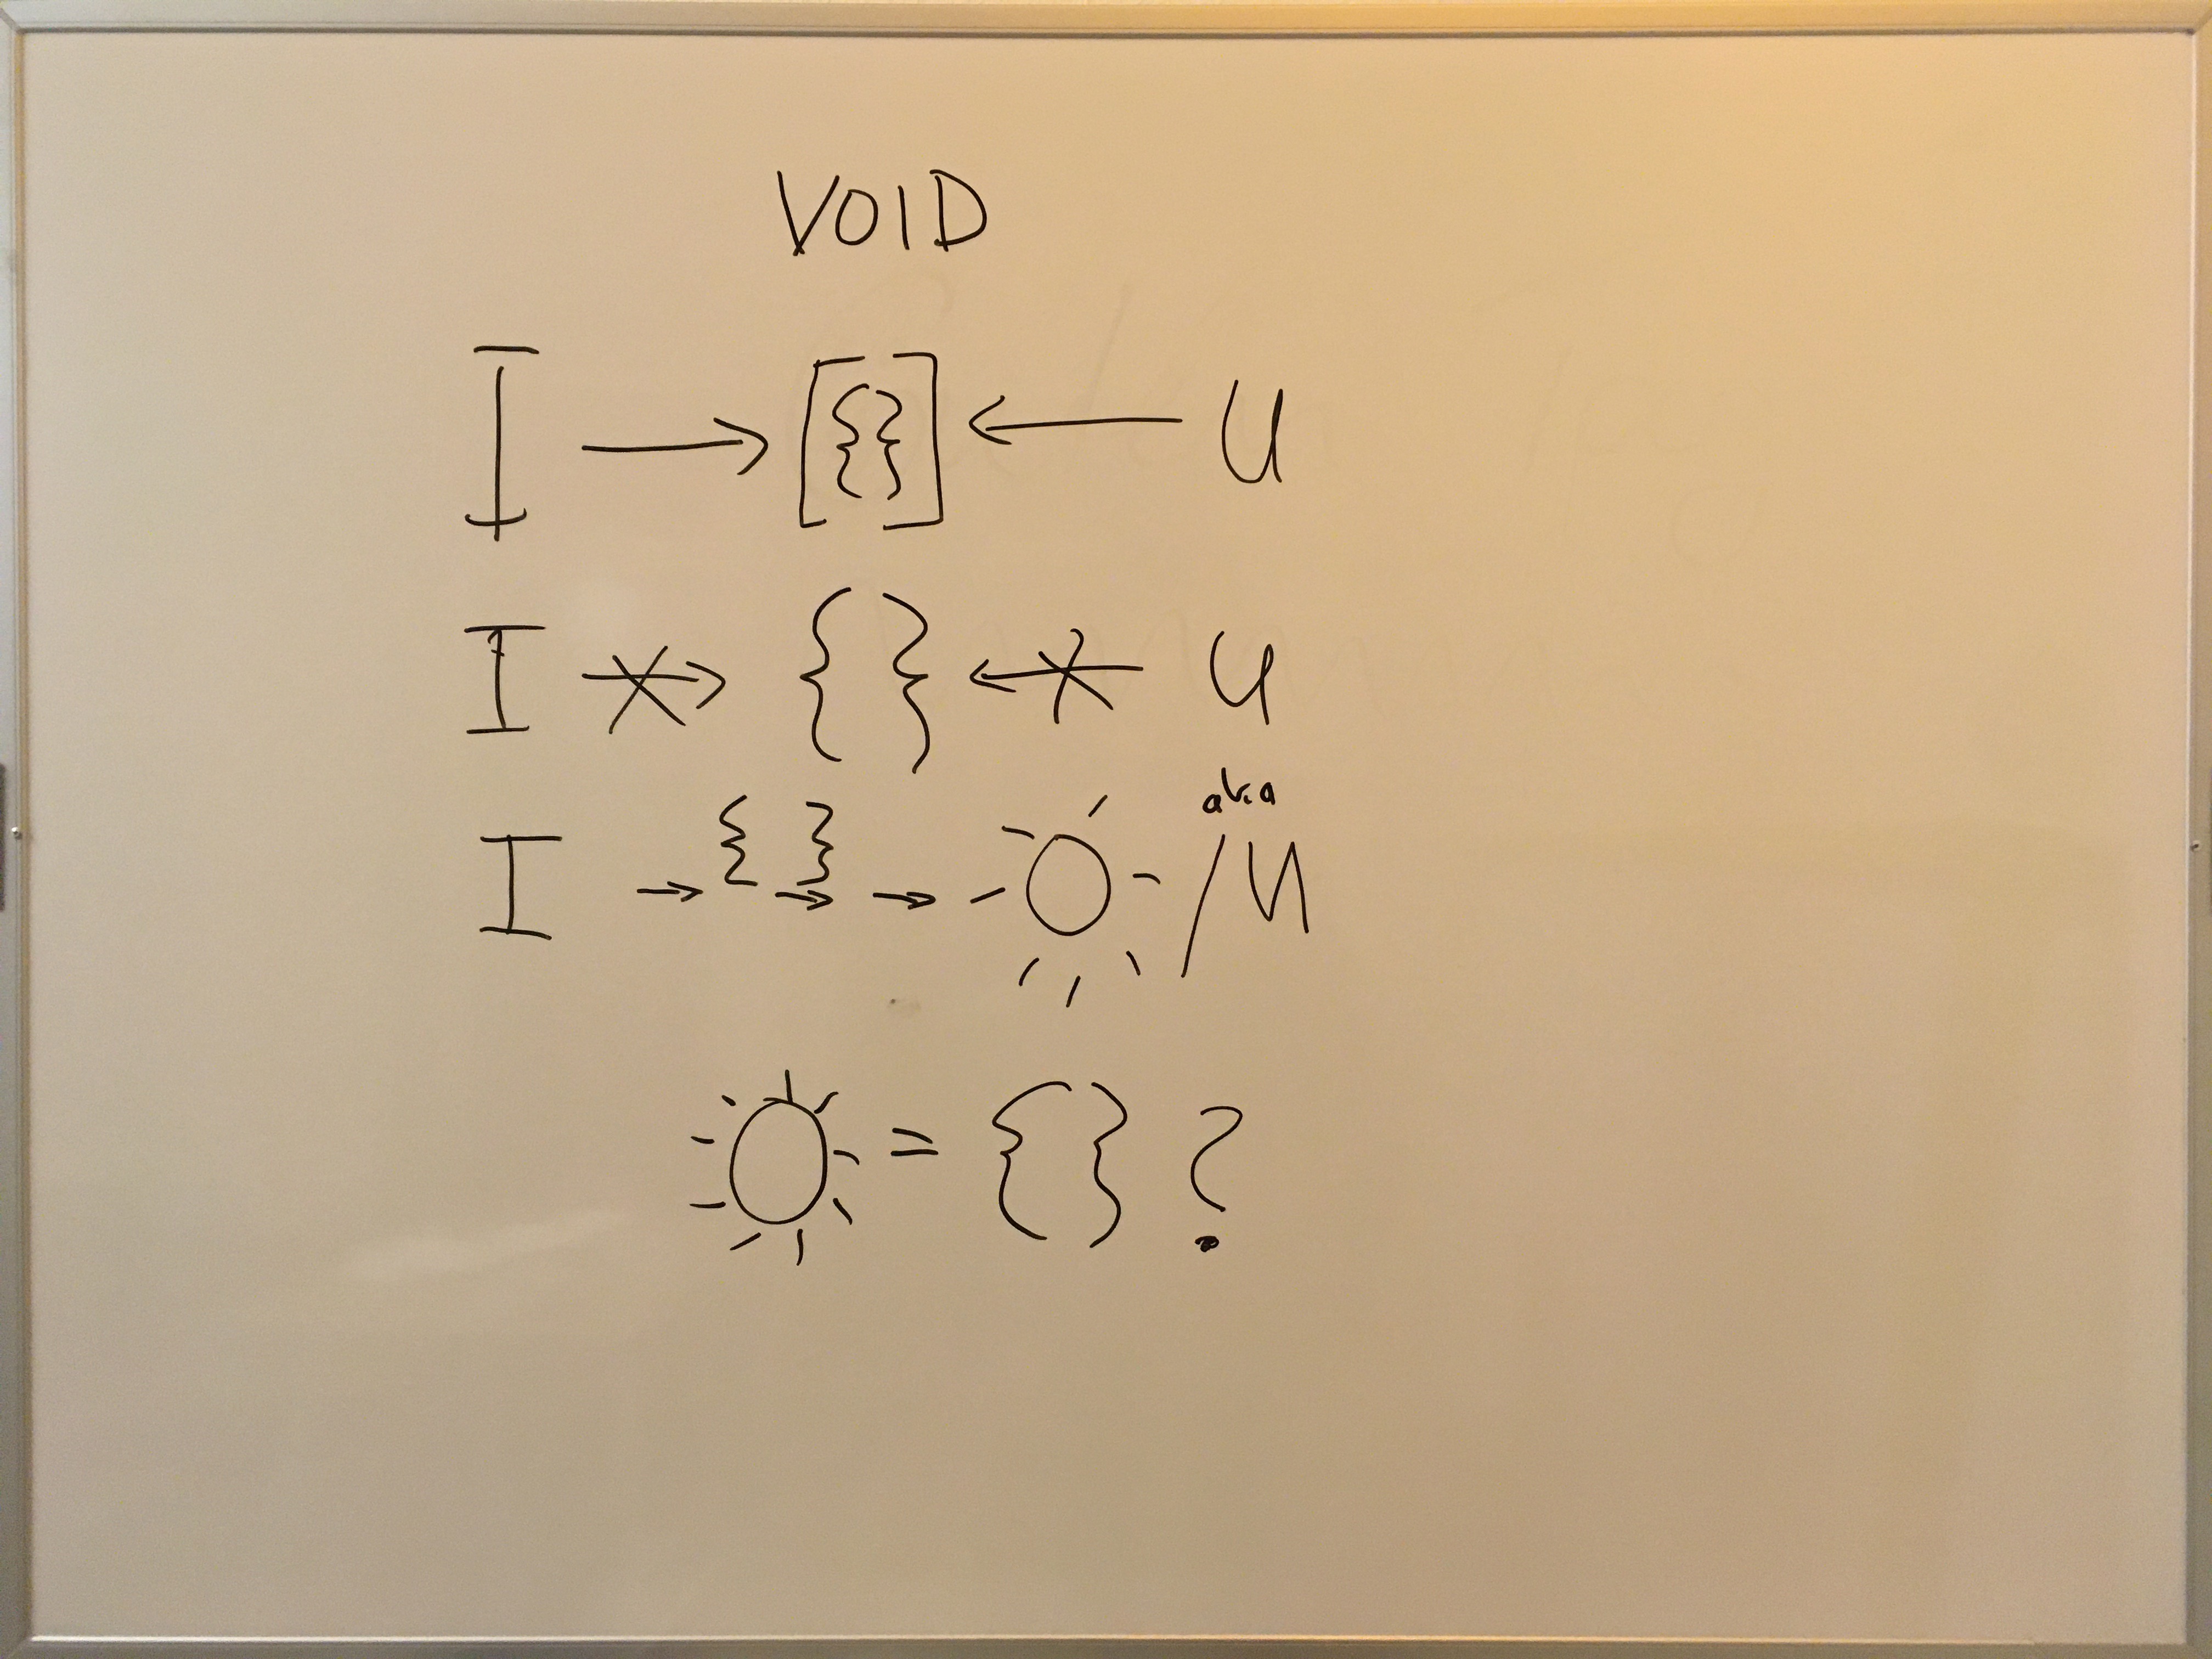 VOID
I → [{}] ← U
I → { } ← U
I → { } → → aka / U
= { } ?